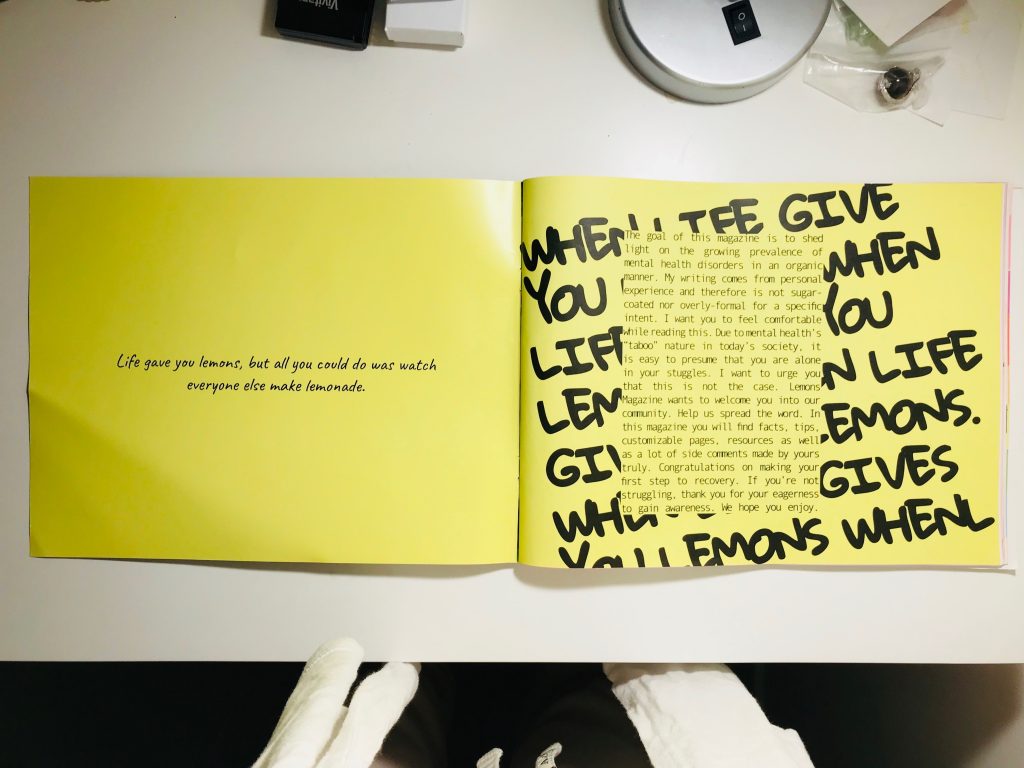 Vivitar
Life gave you lemons, but all you could do was watch
everyone else make lemonade.
WHEN LIFE GIVE
WHEN
YOU
YOU
LIFE
LEMONS.
GIVES
YOU LEMONS WHEN
The goal of this magazine is to shed
light on the growing prevalence of
mental health disorders in an organic
manner. My writing comes from personal
experience and therefore is not sugar-
coated nor overly-formal for a specific
intent. I want you to feel comfortable
while reading this. Due to mental health's
"taboo" nature in today's society, it
is easy to presume that you are alone
in your stuggles. I want to urge you
that this is not the case. Lemons
Magazine wants to welcome you into our
community. Help us spread the word. In
this magazine you will find facts, tips,
customizable pages, resources as well
as a lot of side comments made by yours
truly. Congratulations on making your
first step to recovery. If you're not
struggling, thank you for your eagerness
to gain awareness. We hope you enjoy.